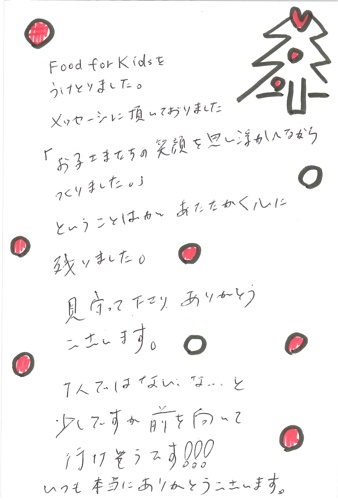 Food for Kidsを
うけとりました。
メッセージに頂いておりました
「お子さまたちの笑顔を思い浮かべながら
つくりました。」
ということばが あたたかく心に
残りました。
見守って下さり ありがとう
ございます。
1人ではない、な...と
少しですが前を向いて
行けそうです!!!
いつも本当にありがとうございます。